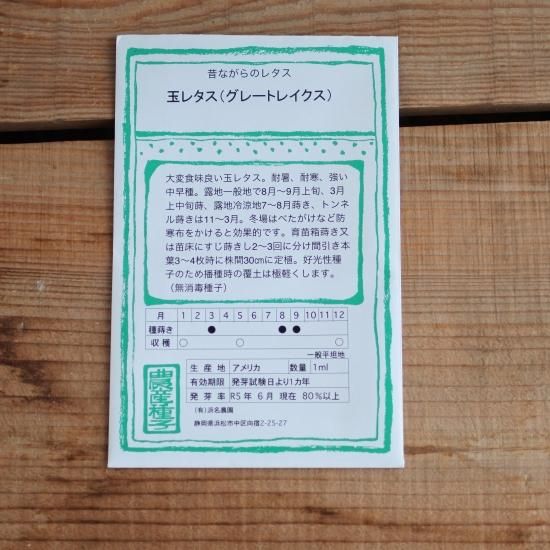 昔ながらのレタス
玉レタス(グレートレイクス)
大変食味良い玉レタス。耐暑、耐寒、強い
中早種。露地一般地で8月〜9月上旬、3月
上中旬蒔、露地冷涼地7〜8月蒔き、トンネ
ル蒔きは11〜3月。冬場はべたがけなど防
寒布をかけると効果的です。育苗箱蒔き又
は苗床にすじ蒔きし2〜3回に分け間引き本
葉3〜4枚時に株間30cmに定植。好光性種
子のため播種時の覆土は極軽くします。
(無消毒種子)
月 1 2 3 4 5 6 7 8 9 10 11 12
種蒔き ● ● ●
収穫 ○ ○ ○
一般平坦地
生産地 アメリカ 数量 1ml
有効期限 発芽試験日より1カ年
発芽率 R5年 6月 現在 80%以上
(有)浜名農園
静岡県浜松市中区向宿2-25-27